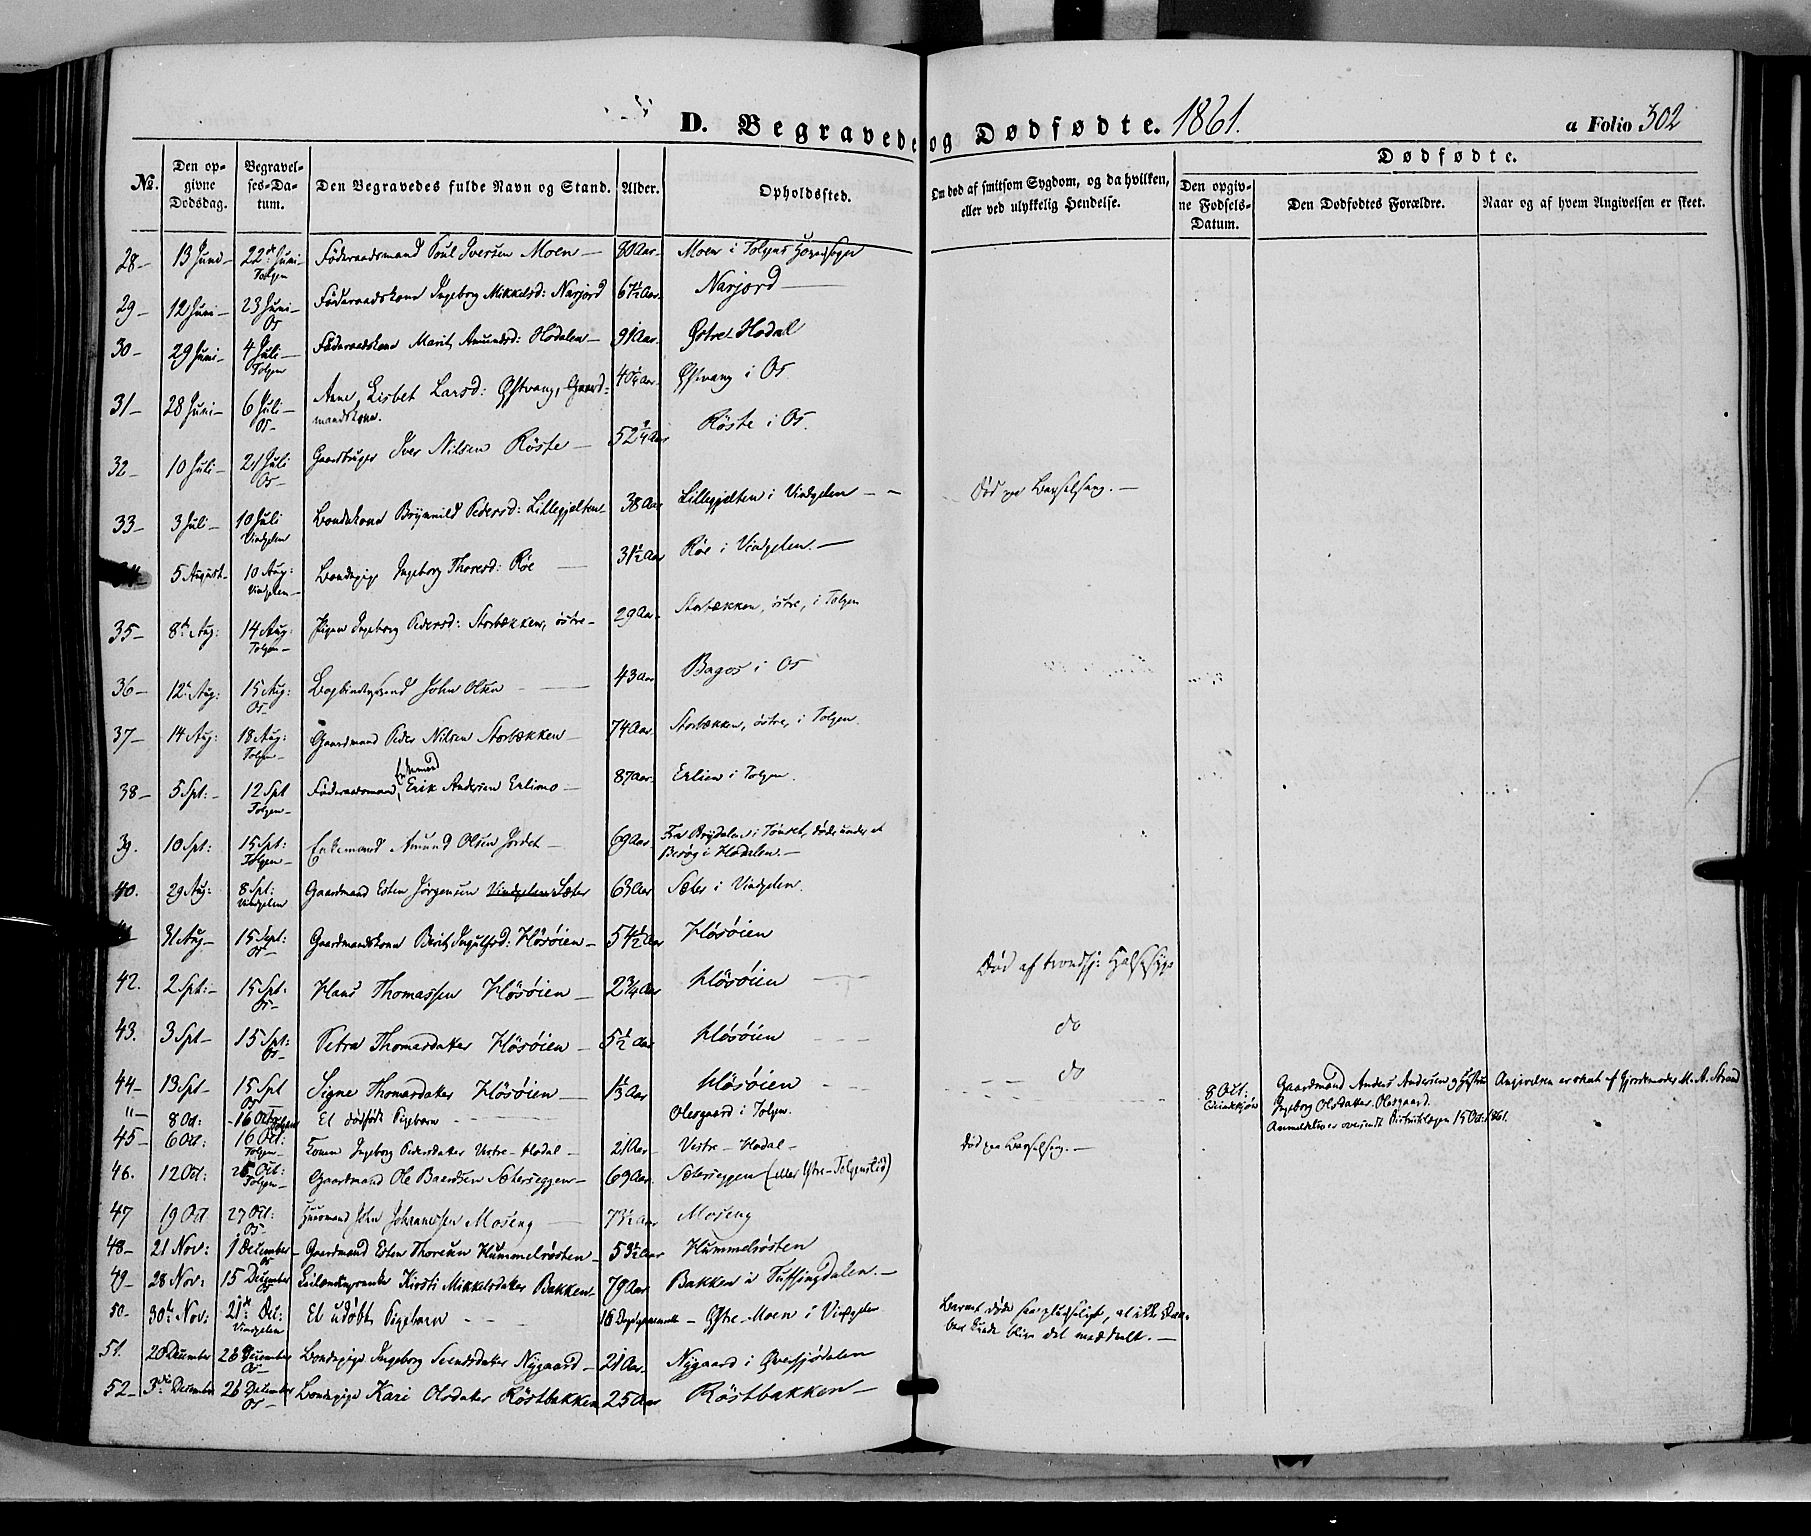 D. Begravede og Dødfødte. 1861. a Folio 302
No. Den opgivne Dødsdag. Begravelses-Datum. Den Begravedes fulde Navn og Stand. Alder. Opholdssted. Om død af smitsom Sygdom, og da hvilken, eller ved ulykkelig Hendelse. Dødfødte. Den opgivne Fødsels-Datum. Den Dødfødtes Forældre. Naar og af hvem Angivelsen er skeet.
28– 13 Juni– 22de Juni– Tolgen Føderaadsmand Poul Iversen Moen – 80 Aar– Moen i Tolgens
29– 12 Juni– 23 Juni– Os Føderaadskone Ingeborg Mikkelsd: Narjord 67½ Aar. Narjord –
30– 29 Juni– 4 Juli– Tolgen Føderaadskone Marit Amundsd: Hodalen – 91 Aar. Østre-Hodal
31– 28 Juni– 6 Juli– Os– Anne Lisbet Larsd: Østvang, Gaard-
mandskone. 40¼ Aar. Østvang i Os
32– 10 Juli– 21 Juli Os– Gaardbruger Iver Nilsen Röste – 52¼ Aar Röste i Os.
33– 3 Juli– 10 Juli Vindgelen Bondekone Brynnild Pedersd: Lillegjelten– 38 Aar Lillegjelten i Vindgelen – – Död paa Barselseng. –
5 August– 10 Aug: Vindgelen– Bondepige Ingeborg Thoresd: Röe – 31½ Aar Röe i Vindgelen. –
35– 8de Aug: 14 Aug: Tolgen– Pigen Ingeborg Pedersd: Storbækken, östre– 29 Aar– Storbækken, östre, i Tolgen
36– 12te Aug: 15 Aug: Os– John Olsen – 43 Aar Bagos i Os
37– 14 Aug: 18 Aug: Tolgen– Gaardmand Peder Nilsen Storbækken – 74 Aar. Storbækken, östre, i Tolgen.
38– 5 Spt:– 12 Spt Tolgen– Føderaadsmand, Enkemand Erik Andersen Erlimo – 87 Aar– Erlien i Tolgen.
39. 10 Spt: 15 Spt: Tolgen– Enkemand Amund Olsen Jordet – 69 Aar Fra Brydalen i Tönset, döde under et
Besög i Hodalen. –
40. 29 Aug: 8 Spt: Vindgelen Gaardmand Esten Jörgensen Vindgelen Sæter 63 Aar Sæter i Vindgelen.
31 Aug– 15 Sept: Os– Gaardmandskone Berit Ingulfsd: Hösöien – 54½ Aar Hösöien
42. 2 Spt:– 15 Spt: Os– Hans Thomassen Hösöien – 2¾ Aar Hösöien Död af Halssyge
43. 3 Spt– 15 Spt: Os– Petra Thomasdater Hösöien – 5½ Aar Hösöien do
44– 13 Spt– 15 Spt Os– Signe Thomasdater Hösöien – 1½ Aar Hösöien do
"– 8 Oct: – 16 October Tolgen Et dödfödt Pigebarn – – Olesgaard i Tolgen. 8 Oct. Qvindekjön Gaardmand Anders Andersen og Hustru
Ingeborg Olsdatter Olesgaard. Angivelsen er skeet af Gjordemoder M. A. Strand
Anmeldelse oversendt Distriktslægen 15 Oct: 1861.
45– 6 Oct: 16 Oct: Tolgen– Konen Ingeborg Pedersdater Vestre-Hodal – 21 Aar– Vestre-Hodal – död paa Barselseng. –
46. 12 Oct: 25 Oct: Tolgen– Gaardmand Ole Baardsen Sæterseggen– 69 Aar. Sæterseggen (eller Østre-Tolgenslid)
47 19 Oct 27 Oct: Os– Huusmand John Johannessen Moseng – 73½ Aar Moseng
48– 21 Nov: 1 December– Os Gaardmand Esten Thoresen Hummelvosten – 53½ Aar Hummelvosten
49– 28 Nov: 15 December Os Kirsti Mikkelsdater Bakken– 79 Aar. Bakken i Tuffingdalen. –
50– 30te Nov: 21de Dec: Vindgelen Et udöbt Pigebarn – – 16 Dage – Østre-Moen i Vindgelen Barnet döde saa pludseligt, at ikke
kunde blive det meddeelt. –
51. 20 December 26 December Os– Bondepige Ingeborg Svendsdater Nygaard – 21 Aar. Nygaard i Øversjödalen
52– 3die December 26 December Os– Bondepige Kari Olsdater Röstbakken 25 Aar Röstbakken –